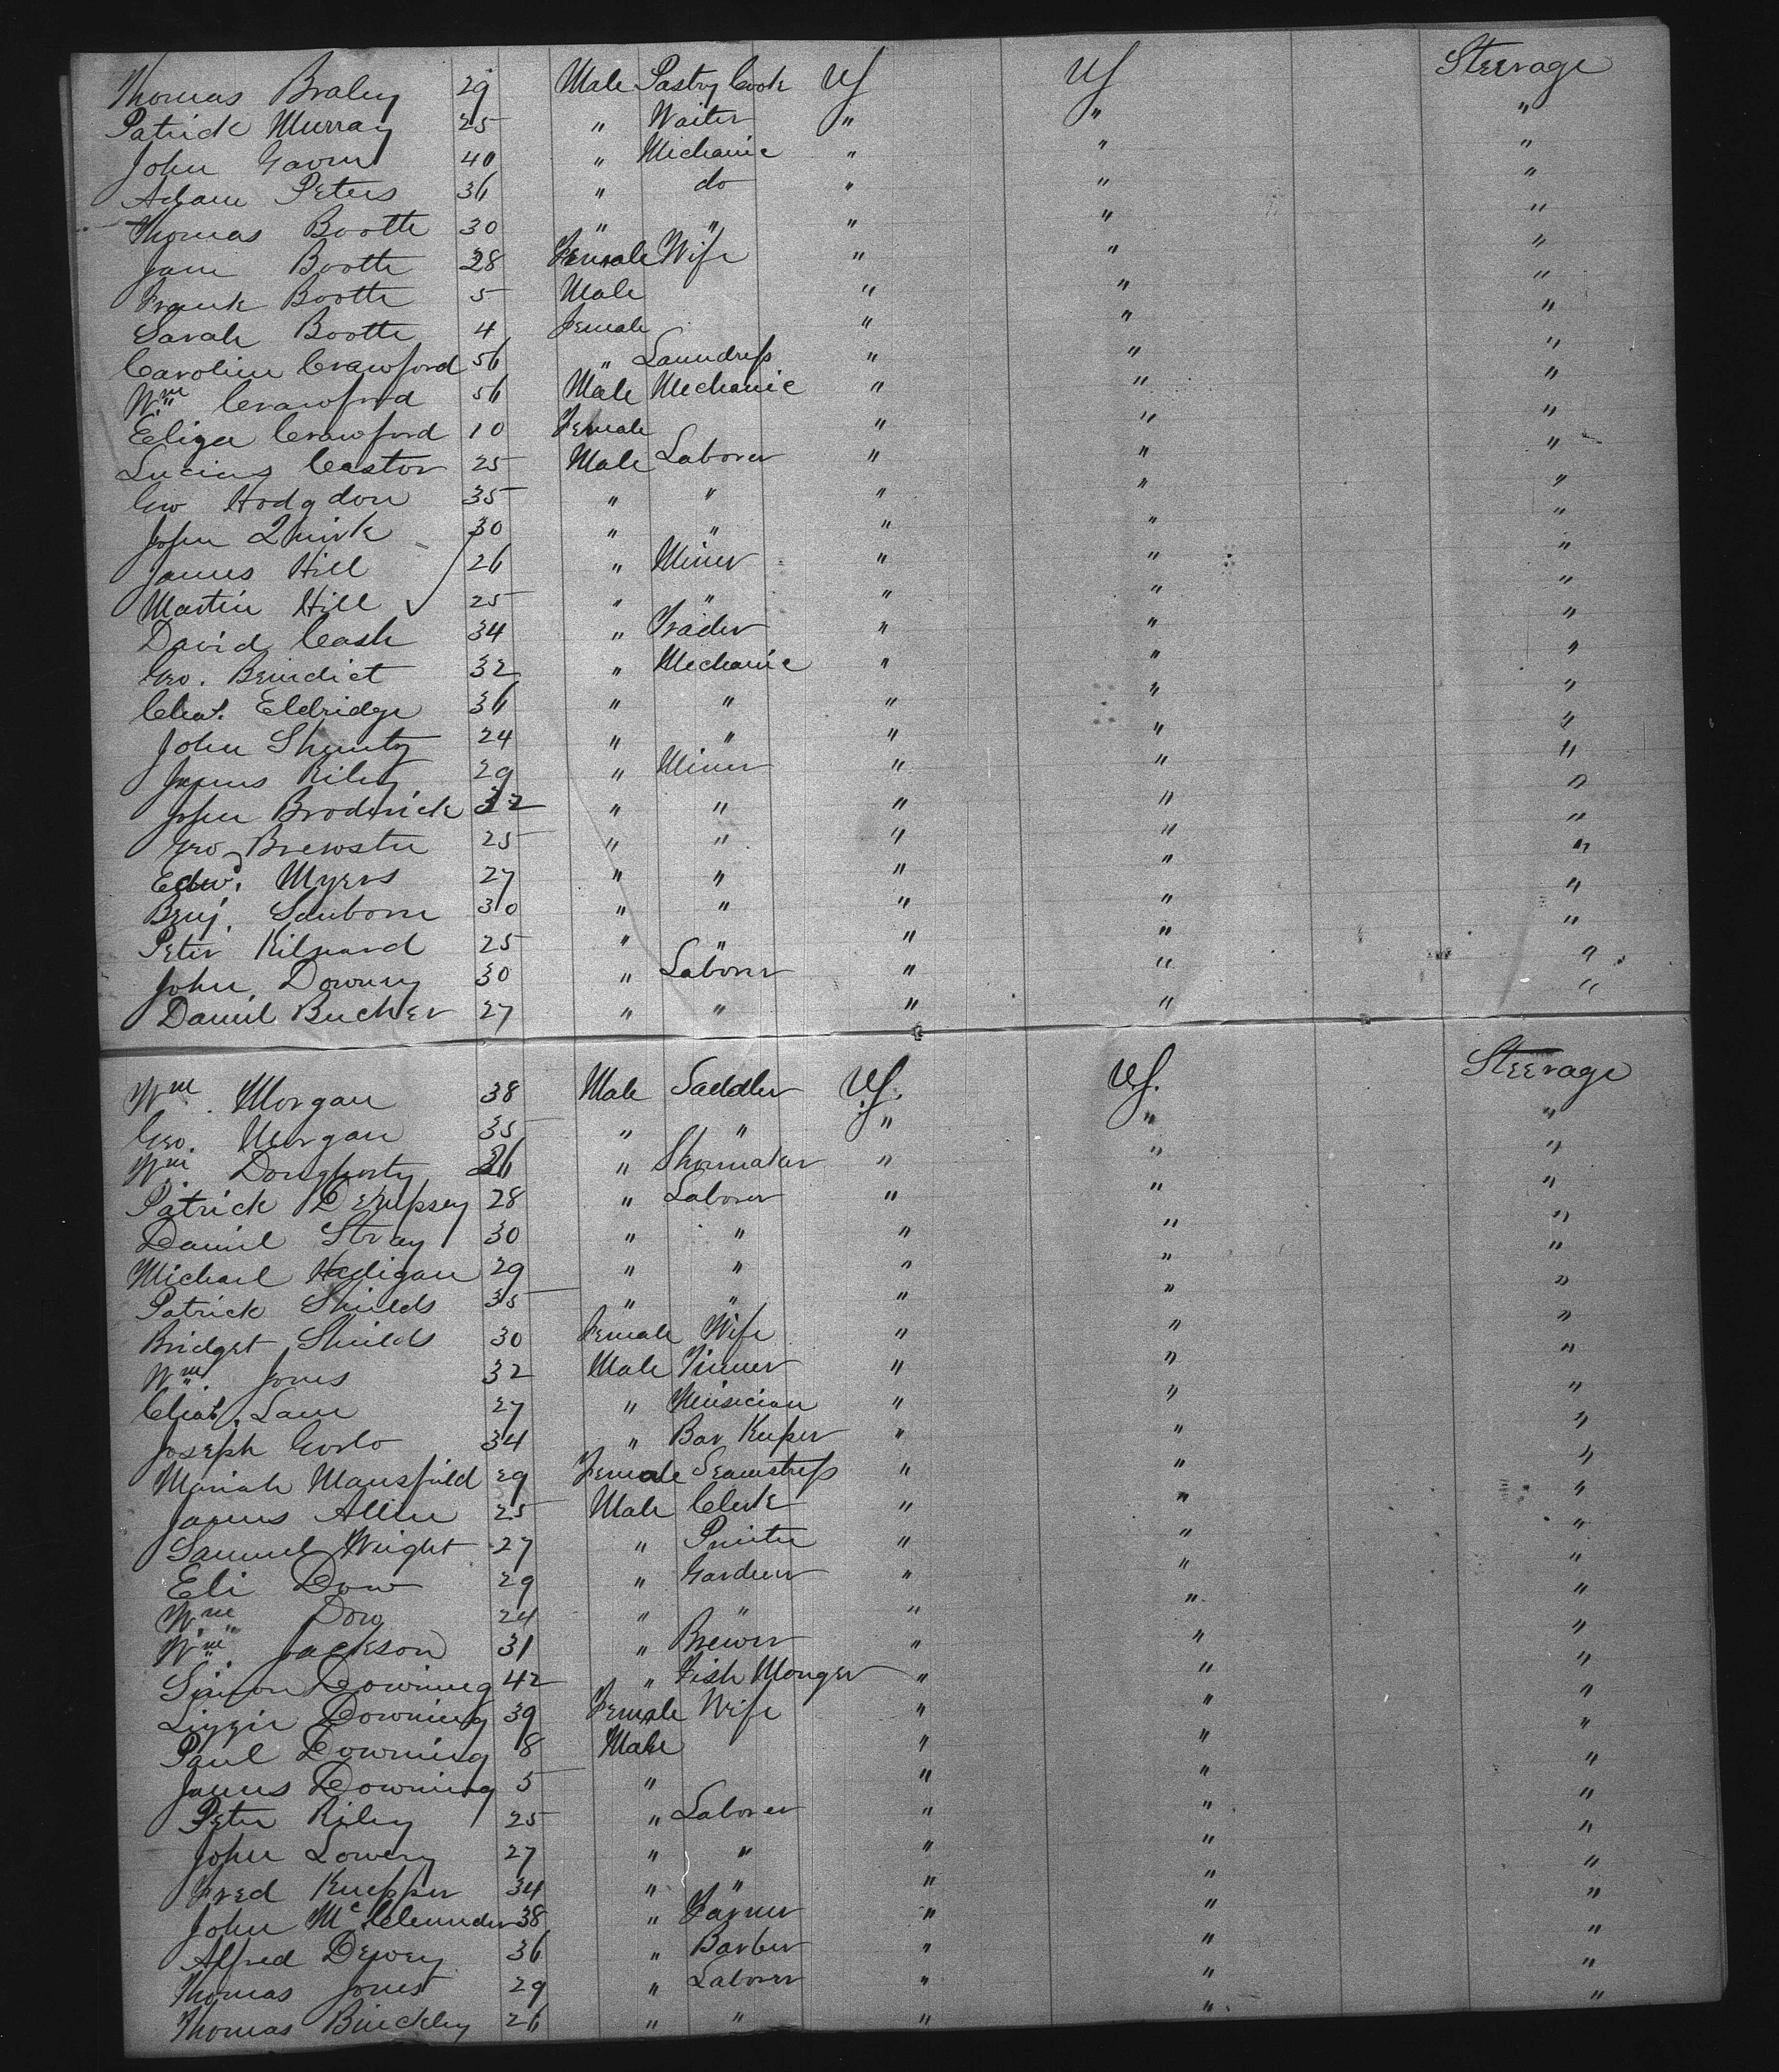 Thomas Braley 29 Male Pastry Cook US US Steerage
Patrick Murray 25 " Waiter " " "
John Gavin 40 " Mechanic " " "
Adam Peters 36 " do " " "
Thomas Booth 30 " " " " "
Jane Booth 28 Female Wife " " "
Frank Booth 5 Male " " "
Sarah Booth 4 Female " " "
Caroline Crawford 56 " Laundress " " "
Wm Crawford 56 Male Mechanic " " "
Eliza Crawford 10 Female " " "
Lucius Castor 25 Male Laborer " " "
Geo Hodgdon 35 " " " " "
John Quirk 30 " " " " "
James Hill 26 " Miner " " "
Martin Hill 25 " " " " "
David Cash 34 " Trader " " "
Geo. Benedict 32 " Mechanic " " "
Chas. Eldridge 36 " " " " "
John Shuntz 24 " " " " "
James Riley 29 " Miner " " "
John Broderick 32 " " " " "
Geo Brewster 25 " " " " "
Edwd. Myers 27 " " " " "
Benj. Sanborn 30 " " " " "
Peter 25 " " " " "
John Downey 30 " Laborer " " "
Daniel Bucher 27 " " " " "
Wm. Morgan 38 Male Saddler US. US. Steerage
Geo. Morgan 35 " " " " "
Wm Dougherty 36 " Shoemaker " " "
Patrick Dempsey 28 " Laborer " " "
Daniel Stray 30 " " " " "
Michael Hadigan 29 " " " " "
Patrick Shields 35 " " " " "
Bridget Shields 30 Female Wife " " "
Wm Jones 32 Male Tinner " " "
Chas. Lane 27 " Musician " " "
Joseph 34 " Bar Keeper " " "
Mariah Mansfield 29 Female Seamstress " " "
James Allen 25 Male Clerk " " "
Samuel Wright 27 " Printer " " "
Eli Dow 29 " Gardener " " "
Wm Dow 24 " " " " "
Wm Jackson 31 " Brewer " " "
Simon Downing 42 " Fish Monger " " "
Lizzie Downing 39 Female Wife " " "
Paul Downing 8 Male " " "
James Downing 5 " " " "
Peter Riley 25 " Laborer " " "
John Lowery 27 " " " " "
Fred Kuepper 34 " " " " "
John 38 " Farmer " " "
Alfred Dewey 36 " Barber " " "
Thomas Jones 29 " Laborer " " "
Thomas Binckley 26 " " " " "